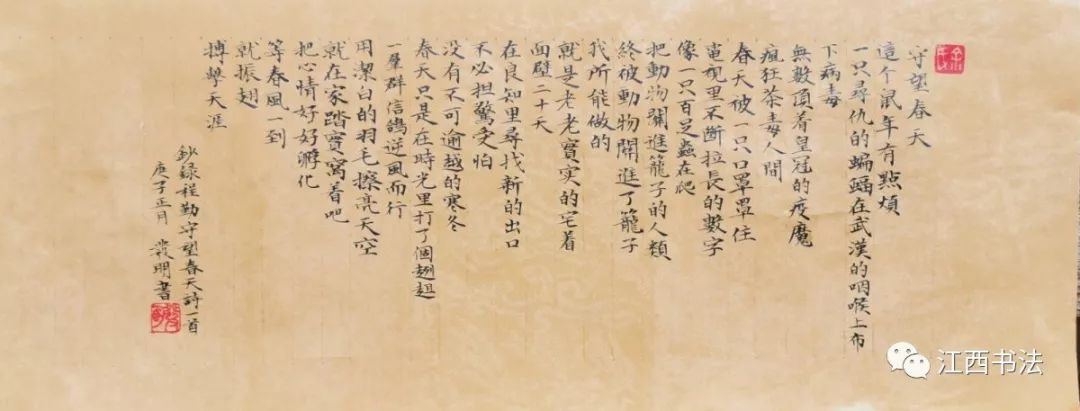 守望春天
這个鼠年有點煩
一只尋仇的蝙蝠在武漢的咽喉上布
下病毒
無數頂着皇冠的疫魔
瘋狂荼毒人間
春天被一只口罩罩住
電視里不断拉長的數字
像一只百足蟲在爬
把動物關進籠子的人類
終被動物關進了籠子
我所能做的
就是老老實实的宅着
面壁二十天
在良知里尋找新的出口
不必担驚受怕
没有不可逾越的寒冬
春天只是在時光里打了個趔趄
一羣群信鴿逆風而行
用潔白的羽毛擦亮天空
就在家踏實窩着吧
把心情好好孵化
等春風一到
就振翅
搏擊天涯
鈔録程勤守望春天詩一首
庚子正月 發明書
江西书法